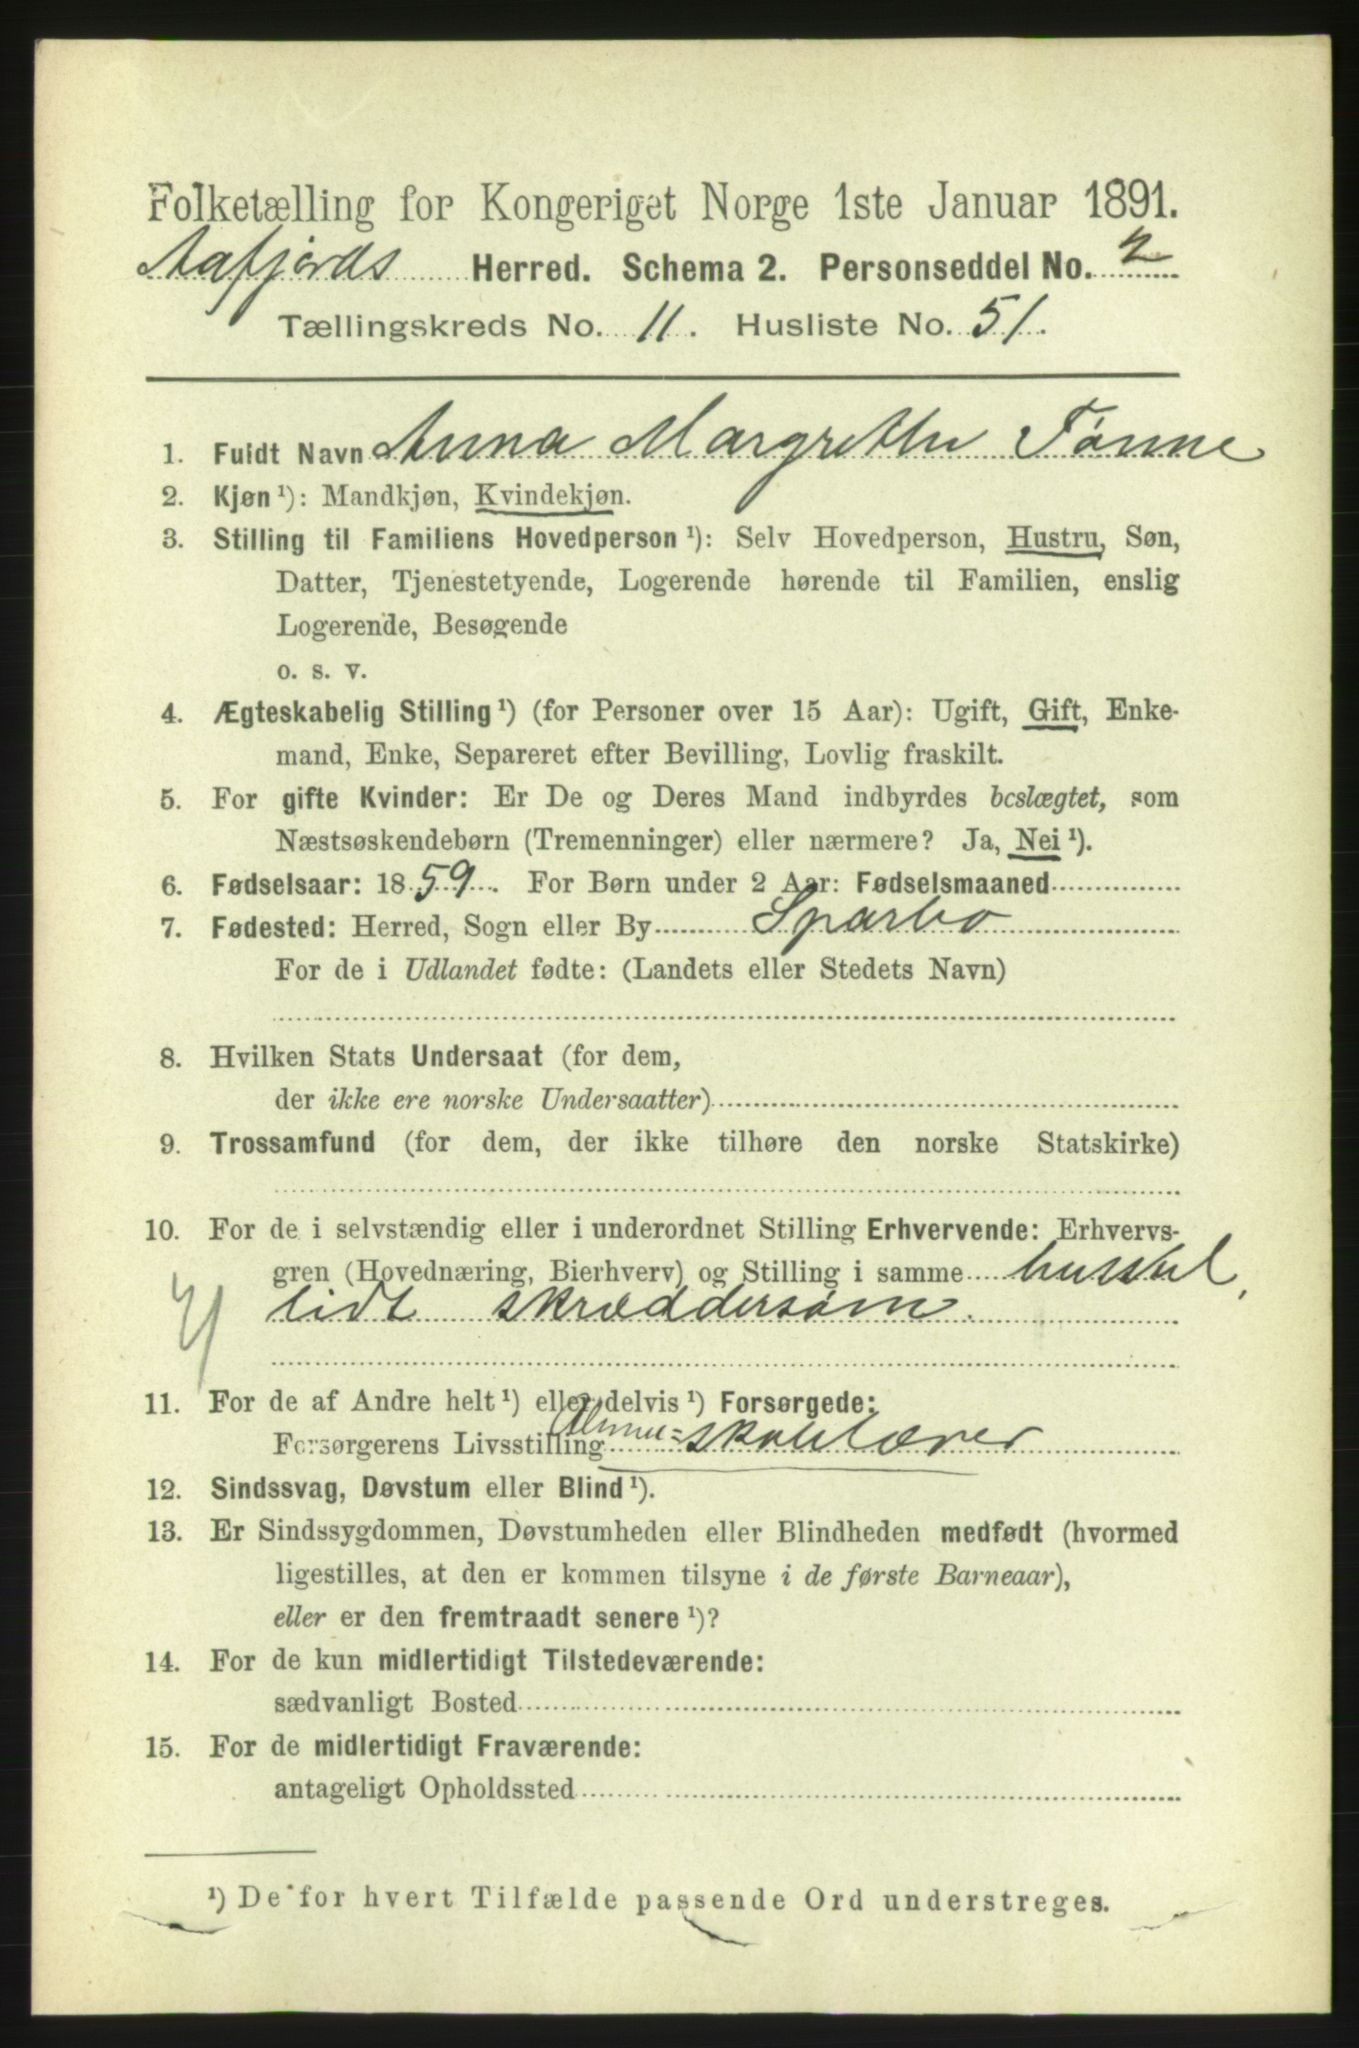 Folketælling for Kongeriget Norge 1ste Januar 1891.
Aafjords Herred. Schema 2. Personseddel No. 2
Tællingskreds No. 11. Husliste No. 51.
1. Fuldt Navn Anna Margrethe Tønne
2. Kjøn ¹): Mandkjøn, Kvindekjøn.
3. Stilling til Familiens Hovedperson ¹): Selv Hovedperson, Hustru, Søn,
Datter, Tjenestetyende, Logerende hørende til Familien, enslig
Logerende, Besøgende
o. s. v.
4. Ægteskabelig Stilling ¹) (for Personer over 15 Aar): Ugift, Gift, Enke-
mand, Enke, Separeret efter Bevilling, Lovlig fraskilt.
5. For gifte Kvinder: Er De og Deres Mand indbyrdes beslægtet, som
Næstsøskendebørn (Tremenninger) eller nærmere? Ja, Nei ¹).
6. Fødselsaar: 1859. For Børn under 2 Aar: Fødselsmaaned
7. Fødested: Herred, Sogn eller By Sparbo
For de i Udlandet fødte: (Landets eller Stedets Navn)
8. Hvilken Stats Undersaat (for dem,
der ikke ere norske Undersaatter)
9. Trossamfund (for dem, der ikke tilhøre den norske Statskirke)
10. For de i selvstændig eller i underordnet Stilling Erhvervende: Erhvervs-
gren (Hovednæring, Bierhverv) og Stilling i samme husstel,
lidt skræddersøm.
11. For de af Andre helt ¹) eller delvis ¹) Forsørgede:
Forsørgerens Livsstilling Almue=skolelærer
12. Sindssvag, Døvstum eller Blind ¹).
13. Er Sindssygdommen, Døvstumheden eller Blindheden medfødt (hvormed
ligestilles, at den er kommen tilsyne i de første Barneaar),
eller er den fremtraadt senere ¹)?
14. For de kun midlertidigt Tilstedeværende:
sædvanligt Bosted
15. For de midlertidigt Fraværende:
antageligt Opholdssted
¹) De for hvert Tilfælde passende Ord understreges.